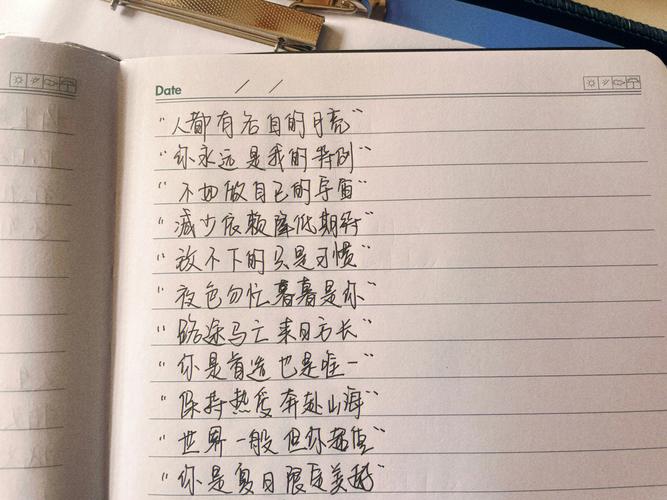 Date / /
"人都有各自的月亮"
"你永远是我的特例"
"不如做自己的宇宙"
"减少依赖降低期待"
"放不下的只是习惯"
"夜色匆忙暮暮是你"
"路途马亡来日方长"
"你是首选也是唯一"
"保持热爱奔赴山海"
"世界一般但你超值"
"你是夏日限定美好"